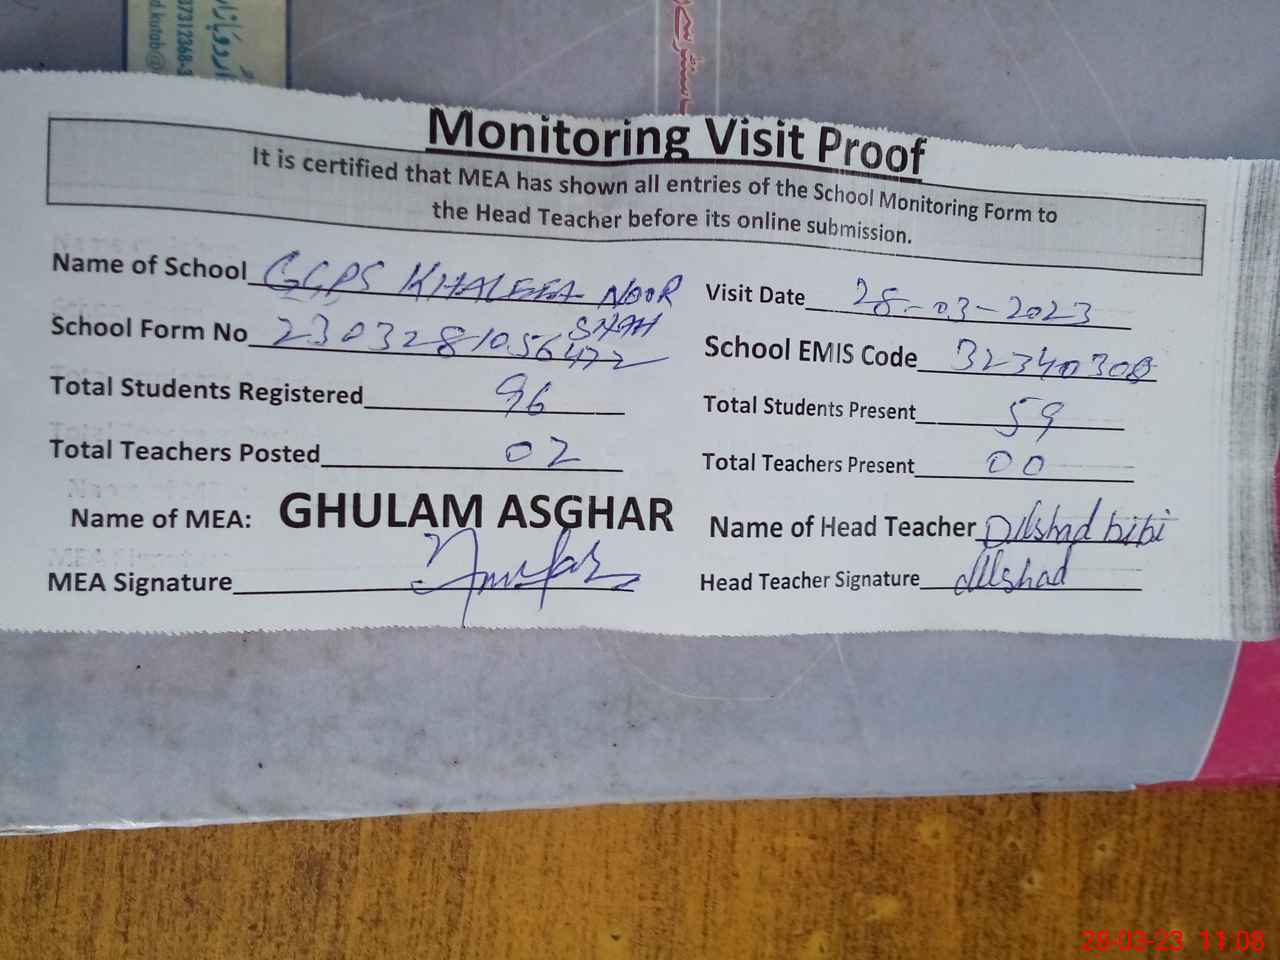 Monitoring Visit Proof
It is certified that MEA has shown all entries of the School Monitoring Form to
the Head Teacher before its online submission.
Name of School GGPS KHALEEFA NOOR SHAH
Visit Date 28-03-2023
School Form No 2303281056472
School EMIS Code 32340308
Total Students Registered 96
Total Students Present 59
Total Teachers Posted 02
Total Teachers Present 00
Name of MEA: GHULAM ASGHAR
Name of Head Teacher Dilshad bibi
MEA Signature
Head Teacher Signature dilshad
28-03-23 11:08